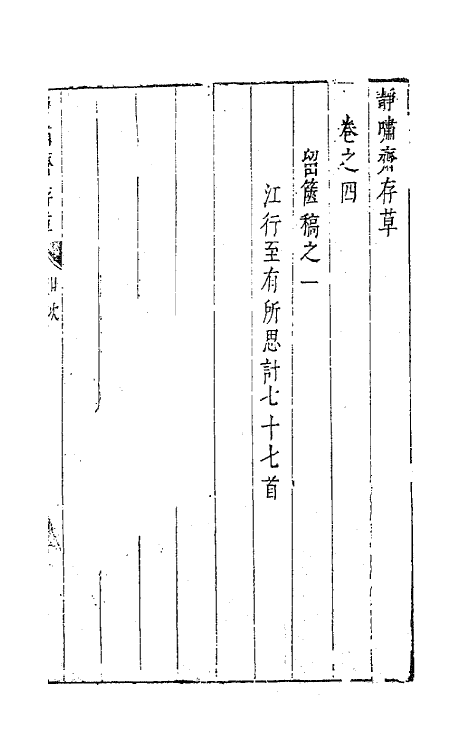 靜嘯齋存草
卷之四
留篋稿之一
江行至有所思計七十七首